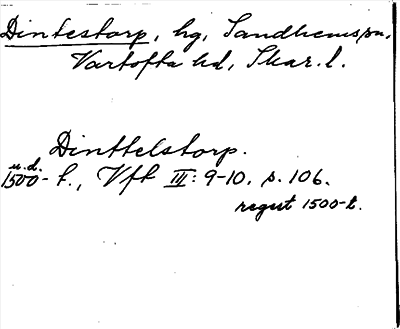 Dintestorp, hg, Sandhems sn,
Vartofta hd, Skar. l.
Dinttelstorp.
u.d.
1500-t., Vft III: 9-10, s. 106.
regist 1500-t.